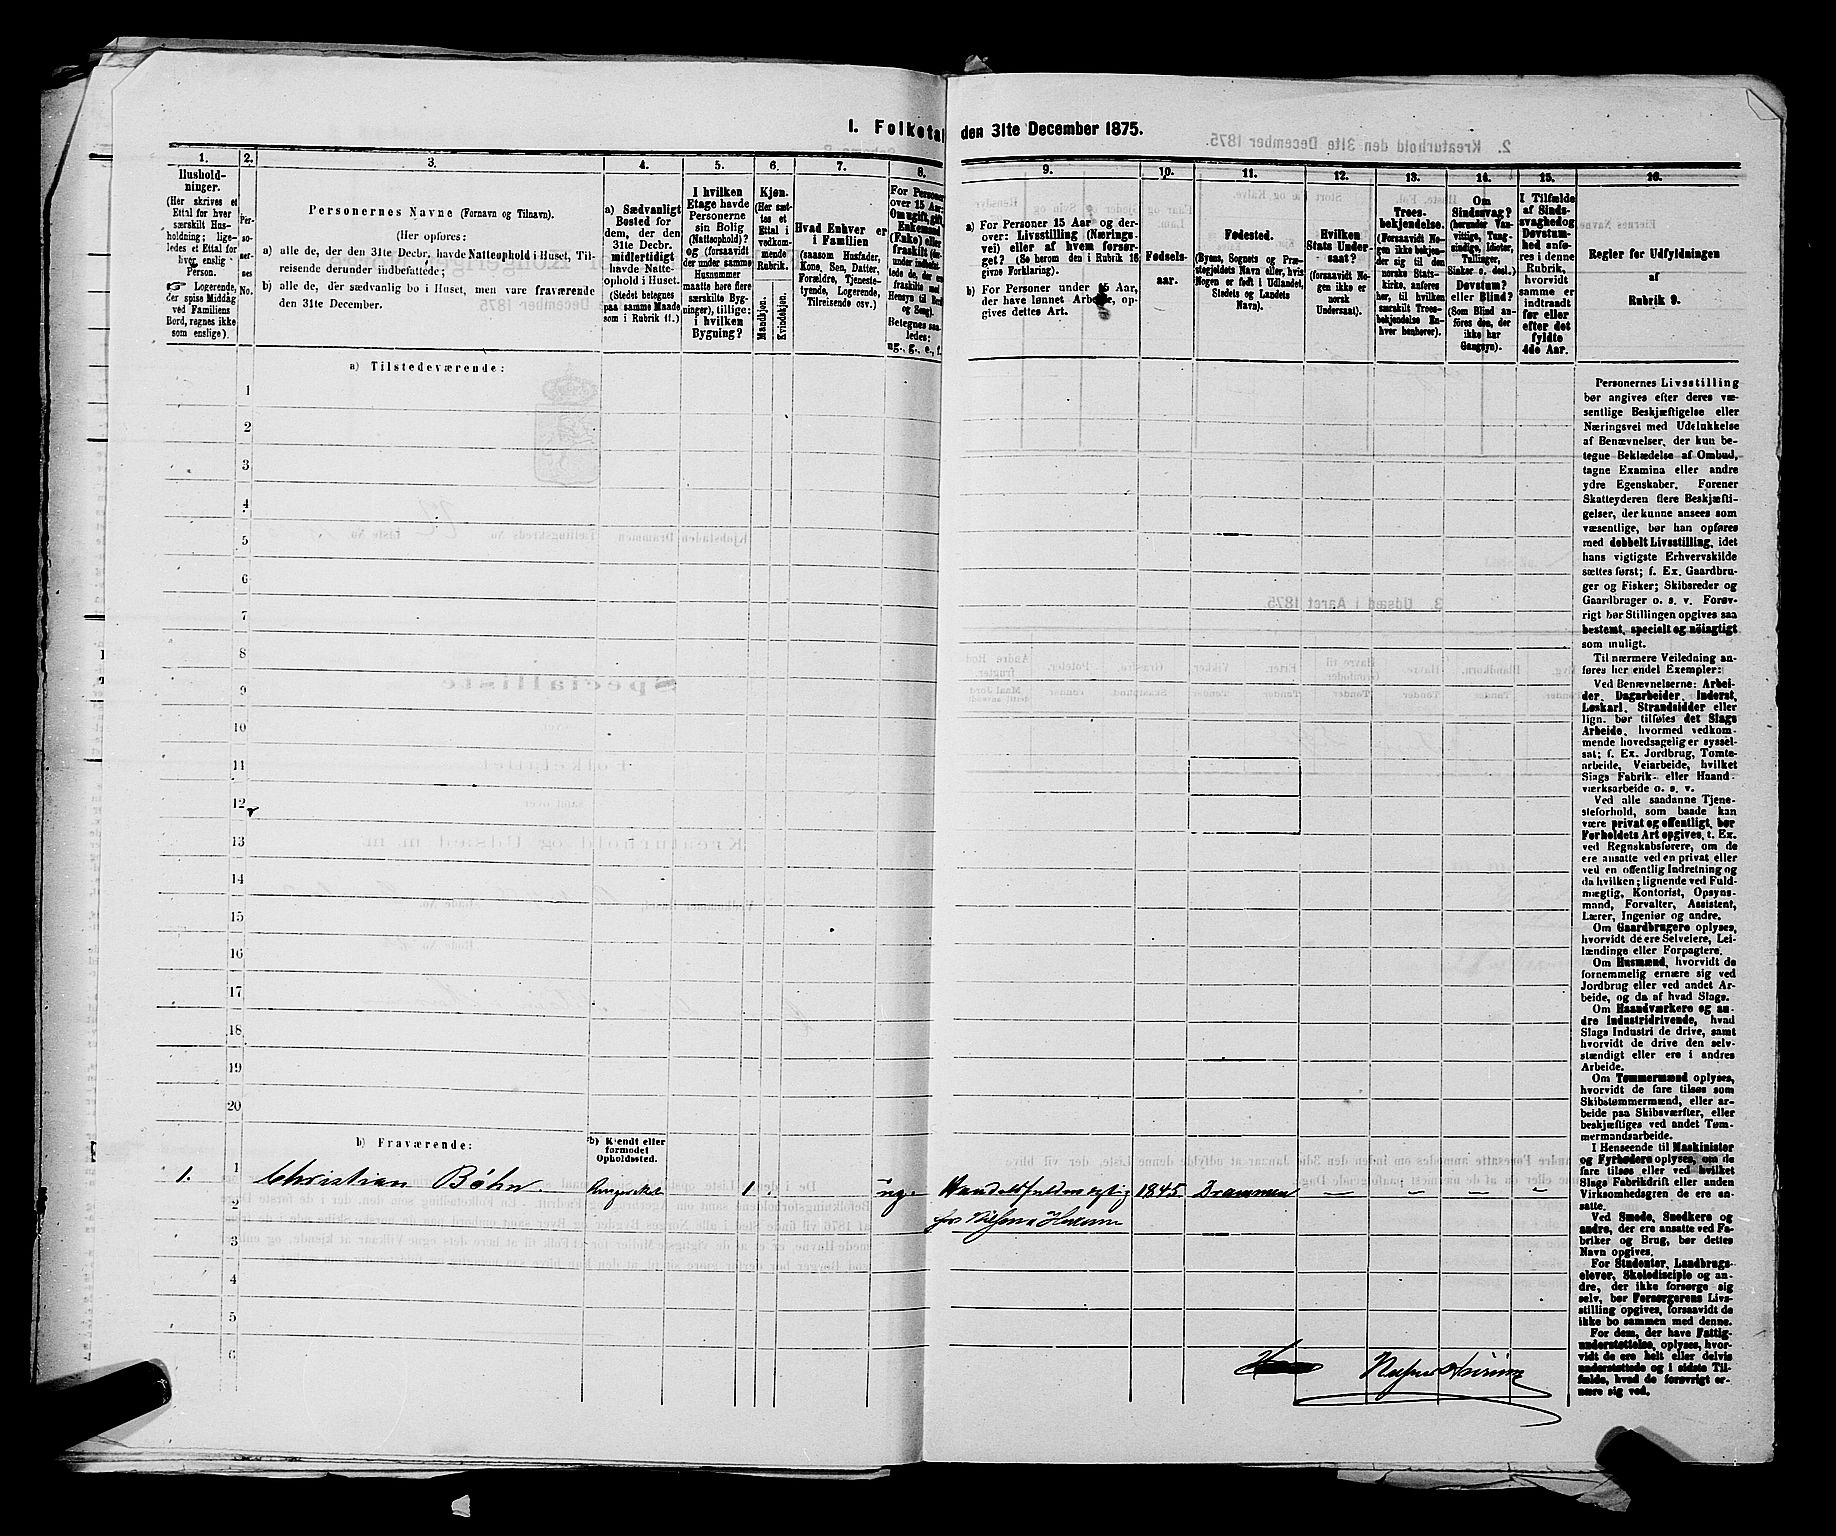 I. Folketal den 31te December 1875.
1.
Husholdninger.
(Her skrives et
Ettal for hver
særskilt Husholdning; ligeledes et Ettal for
hver enslig
Person.
☞ Logerende,
der spise Middag
ved Familiens
Bord, regnes ikke
som enslige).
2.
Personernes
No.
3.
Personernes Navne (Fornavn og Tilnavn).
(Her opføres:
a) alle de, der den 31te Decbr. havde Natteophold i Huset, Tilreisende derunder indbefattede;
b) alle de, der sædvanlig bo i Huset, men vare fraværende
den 31te December.
4.
a) Sædvanligt
Bosted for
dem, der den
31te Decbr.
midlertidigt
havde Natteophold i Huset.
(Stedet betegnes
paa samme Maade
som i Rubrik 11.)
5.
I hvilken
Etage havde
Personerne
sin Bolig
(Natteophold)?
og (forsaavidt
der under samme
Husnummer
maatte høre flere
særskilte Bygninger), tillige:
i hvilken
Bygning?
6.
Kjøn.
(Her sættes et
Ettal i
vedkommende
Rubrik.
Mandkjøn.
Kvindekjøn.
7.
Hvad Enhver er
i Familien
(saasom Husfader,
Kone, Søn, Datter,
Forældre, Tjenestetyende, Logerende,
Tilreisende osv.)
8.
For Personer
over 15 Aar:
Om ugift, gift,
Enkemand
(Enke) eller
fraskilt
Betegnes saaledes:
ug., g., e., f.
9.
a) For Personer 15 Aar og derover: Livsstilling (Næringsvei) eller af hvem forsørget? (Se herom den i Rubrik 16
givne Forklaring).
b) For Personer under 15 Aar,
der have lønnet Arbeide, opgives dettes Art.
10.
Fødselsaar.
11.
Fødested.
(Byens, Sognets og Præstegjeldets Navn eller, hvis
Nogen er født i Udlandet,
Stedets og Landets
Navn).
12.
Hvilken
Stats Undersaat?
(forsaavidt Nogen ikke er
norsk
Undersaat).
13.
Troesbekjendelse.
(Forsaavidt Nogen ikke bekjender sig til den
norske Statskirke, anføres
her, til hvilken
særskilt Troesbekjendelse Enhver henhører).
14.
Om
Sindssvag?
(herunder Vanvittige, Tungsindige, Idioter,
Tullinger,
Sinker o. desl.)
Døvstum?
eller Blind?
(Som Blind anføres den, der
ikke har
Gangsyn).
15.
I Tilfælde
af Sindssvaghed og
Døvstumhed anføres i denne
Rubrik,
hvorvidt
samme er
indtraadt
før eller
efter det
fyldte
4de Aar.
16.
Regler for Udfyldningen
af
Rubrik 9.
a) Tilstedeværende:
1
2
3
4
5
6
7
8
9
10
11
12
13
14
15
16
17
18
19
20
b) Fraværende:
b) Kjendt eller
formodet
Opholdssted.
1. 1 Christian Böhn. 1 ug. Handelsfuldmægtig 1845 Drammen — — — "
2 for
3
4
5
6
Personernes Livsstilling
bør angives efter deres væsentlige Beskjæftigelse eller
Næringsvei med Udelukkelse
af Benævnelser, der kun betegne Beklædelse af Ombud,
tagne Examina eller andre
ydre Egenskaber. Forener
Skatteyderen flere Beskjæftigelser, der kunne ansees som
væsentlige, bør han opføres
med dobbelt Livsstilling, idet
hans vigtigste Erhvervskilde
sættes først; f. Ex. Gaardbruger og Fisker; Skibsreder og
Gaardbruger o. s. v. Forøvrigt bør Stillingen opgives saa
bestemt, specielt og nöiagtigt
som muligt.
Til nærmere Veiledning anføres her endel Exempler:
Ved Benævnelserne: Arbeider, Dagarbeider, Inderst,
Løskarl, Strandsidder eller
lign. bør tilføies det Slags
Arbeide, hvormed vedkommende hovedsagelig er sysselsat; f. Ex. Jordbrug, Tomtearbeide, Veiarbeide, hvilket
Slags Fabrik- eller Haandværksarbeide o. s. v.
Ved alle saadanne Tjenesteforhold, som baade kan
være privat og offentligt, bør
Forholdets Art opgives, t. Ex.
ved Regnskabsførere, om de
ere ansatte ved en privat eller
ved en offentlig Indretning og
da hvilken; lignende ved Fuldmægtig, Kontorist, Opsynsmand, Forvalter, Assistent,
Lærer, Ingeniør og andre.
Om Gaardbrugere oplyses,
hvorvidt de ere Selveiere, Leilændinge eller Forpagtere.
Om Husmænd, hvorvidt de
fornemmelig ernære sig ved
Jordbrug eller ved andet Arbeide, og da af hvad Slags.
Om Haandværkere og andre Industridrivende, hvad
Slags Industri de drive, samt
hvorvidt de drive den selvstændigt eller ere i andres
Arbeide.
Om Tømmermænd oplyses,
hvorvidt de fare tilsøs som
Skibstømmermænd, eller arbeide paa Skibsværfter, eller
beskjæftiges ved andet Tømmermandsarbeide.
I Henseende til Maskinister
og Fyrbødere oplyses, om de
fare tilsøs eller ved hvilket
Slags Fabrikdrift eller anden
Virksomhedsgren de ere ansatte.
Ved Smede, Snedkere og
andre, der ere ansatte ved Fabriker og Brug, bør dettes
Navn opgives.
For Studenter, Landbrugselever, Skoledisciple og andre, der ikke forsørge sig
selv, bør Forsørgerens Livsstilling opgives, forsaavidt de
ikke bo sammen med denne.
For dem, der have Fattigunderstøttelse, oplyses, hvorvidt de ere helt eller delvis
understøttede og i sidste Tilfælde, hvad de forøvrigt ernære sig ved.